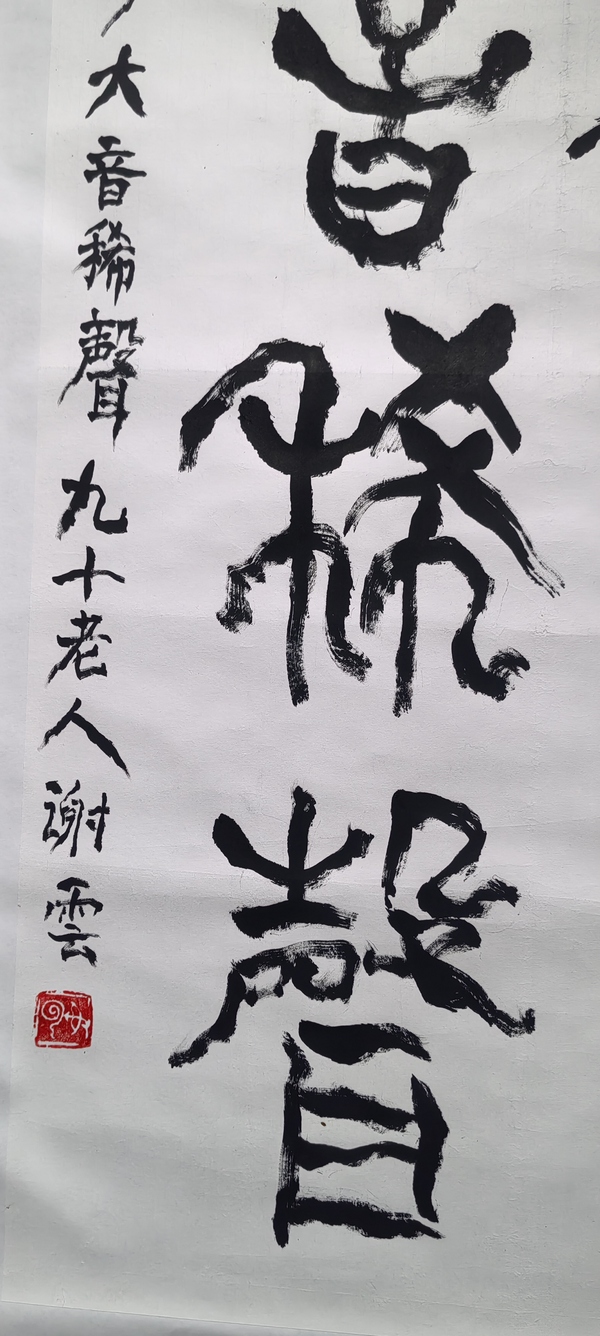 音稀聲
大音稀聲九十老人謝雲